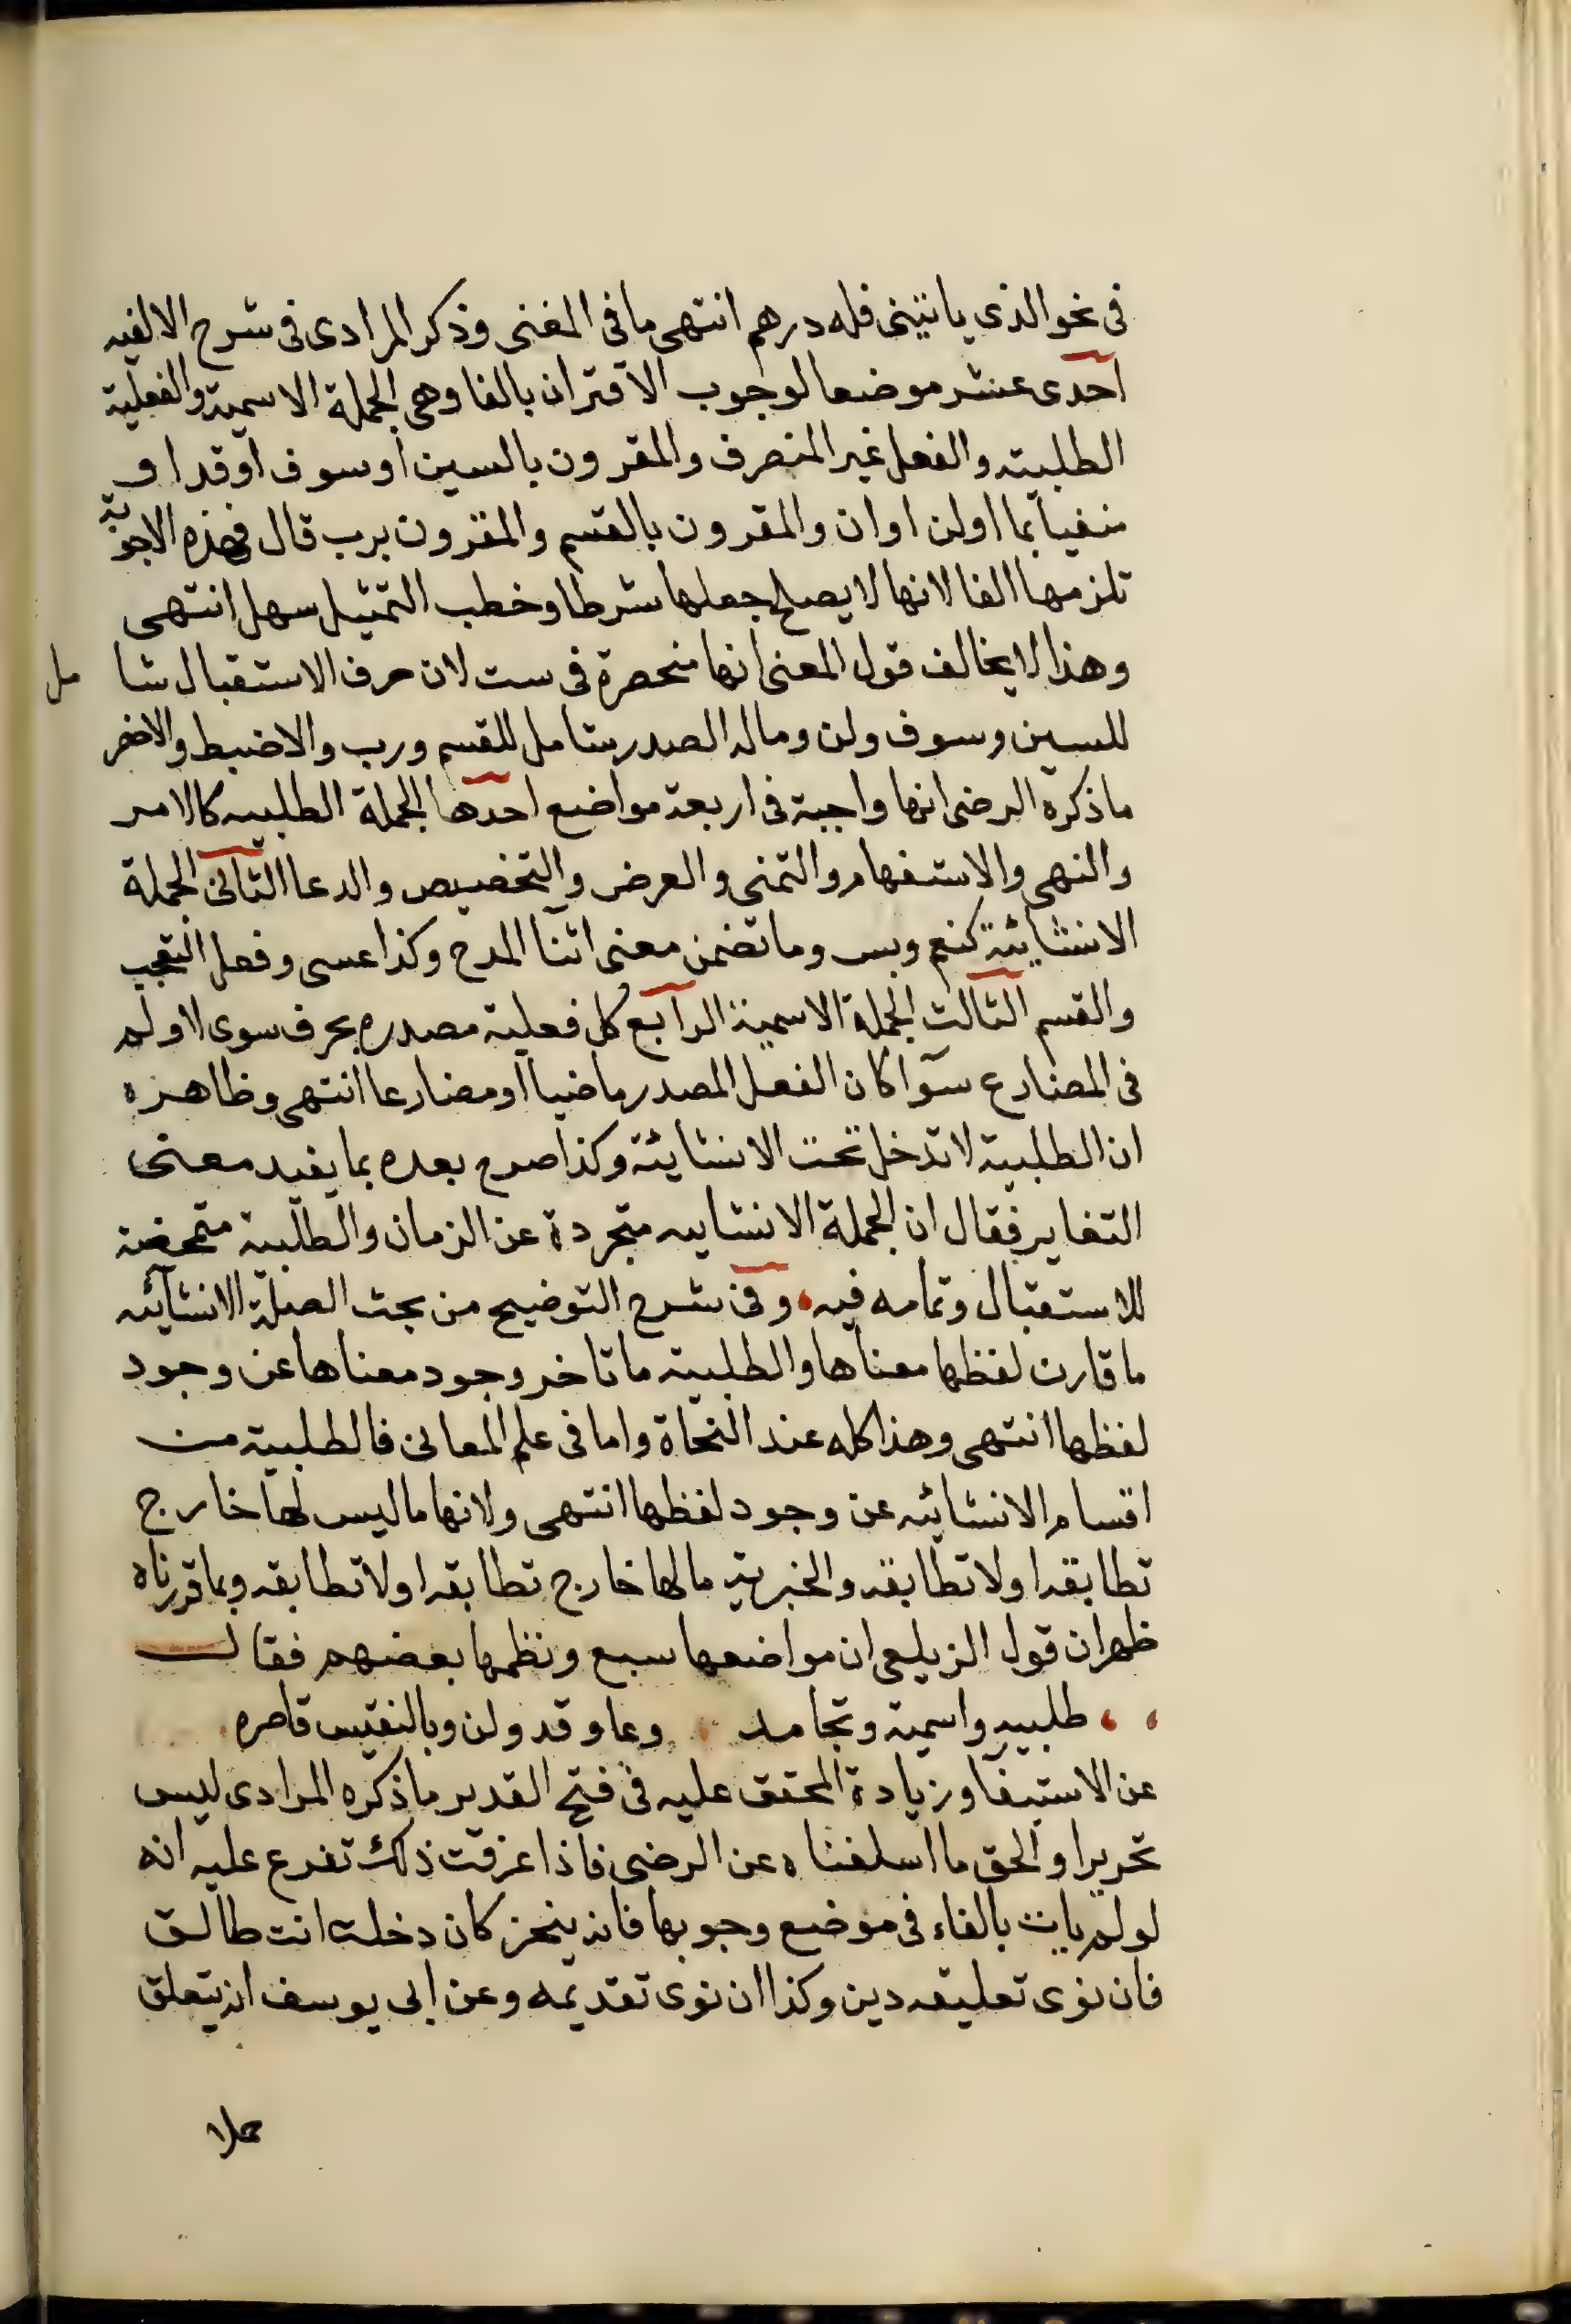 فى نحو الذى ياتينى فله درهم انتهى ما فى المغنى وذكر المرادى فى شرح الالفيه
احدى عشر موضعا لوجوب الاقتران بالفا وهى الجملة الاسمية والفعلية
الطلبيته والفعل غير المنصرف والمقرون بالسين او سوف او قد او
منفيا بما اولن اوان والمقرون بالقسم والمقرون برب قال فهذه الاجوبة
تلزمها الفا لانها لا يصلح جعلها شرطا وخطب التمثيل سهل انتهى
وهذا لا يخالف قول المغنى انها منحصرة فى ست لان حرف الاستقبال شامل
للسين وسوف ولن وماله الصدر شامل للقسم ورب والاضبط والاخصر
ما ذكره الرضى انها واجبة فى اربعة مواضع احدها الجملة الطلبيه كالامر
والنهى والاستفهام والتمنى والعرض والتخصيص والدعا الثانى الجملة
الانشائية كنعم وبس وما تضمن معنى اثنا المدح وكذا عسى وفعل التعجب
والقسم الثالث الجملة الاسمية الرابع كل فعلية مصدره بحرف سوى لا ولم
فى المضارع سوا كان الفعل المصدر ماضيا او مضارعا انتهى وظاهره
ان الطلبية لا تدخل تحت الانشايئة وكذا صرح بعده بما يفيد معنى
التغاير فقال ان الجملة الانشايه متجردة عن الزمان والطلبية متمحضة
للاستقبال وتمامه فيه وفى شرح التوضيح من بحث الصلة الانشائيه
ما قارن لفظها معناها والطلبيته ما تاخر وجود معناها عن وجود
لفظها انتهى وهذا كله عند النحاة واما فى علم المعانى فالطلبية من
اقسام الانشائيه عن وجود لفظها انتهى ولانها ما ليس لها خارج
تطابقه اولا تطابقه والخبرية ما لها خارج تطابقه اولا تطابقه وبما قررناه
ظهر ان قول الزيلعى ان مواضعها سبع ونظمها بعضهم فقال
طلبيه واسمية وتجامد وبما وقد ولن وبالتنفيس قاصره
عن الاستيفا وزيادة المحقق عليه فى فتح القدير ما ذكره المرادى ليس
تحريرا والحق ما اسلفناه عن الرضى فاذا عرفت ذلك تفرع عليه انه
لو لم يات بالفاء فى موضع وجوبها فانه ينجز كان دخلت انت طالق
فان نوى تعليقه دين وكذا ان نوى تقديمه وعن ابى يوسف انه يتعلق
حملا